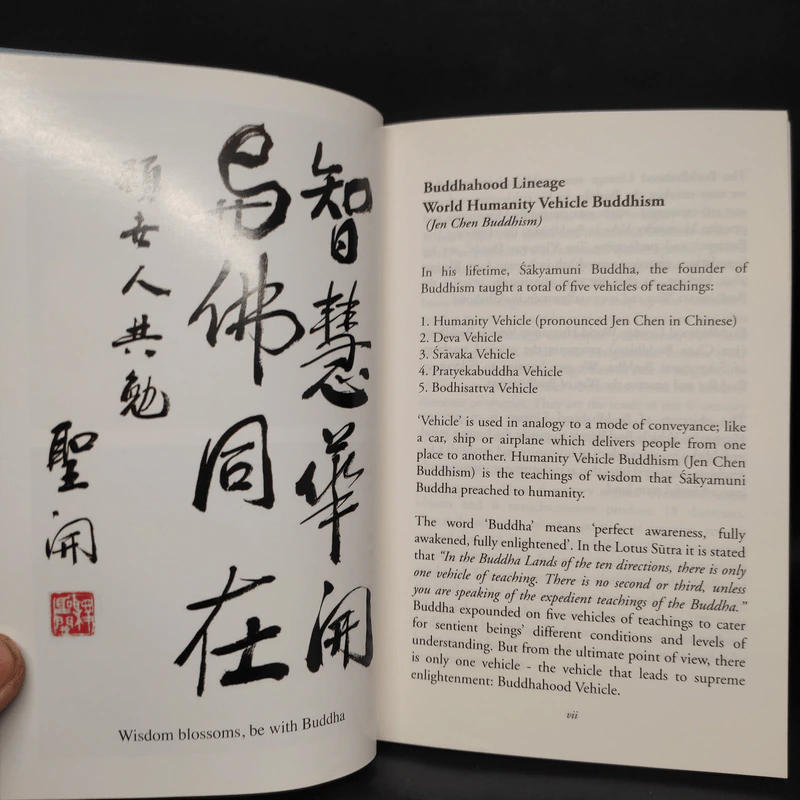 智慧華開
與佛同在
願世人共勉
聖開
Wisdom blossoms, be with Buddha
Buddhahood Lineage
World Humanity Vehicle Buddhism
(Jen Chen Buddhism)
In his lifetime, Śākyamuni Buddha, the founder of
Buddhism taught a total of five vehicles of teachings:
1. Humanity Vehicle (pronounced Jen Chen in Chinese)
2. Deva Vehicle
3. Śrāvaka Vehicle
4. Pratyekabuddha Vehicle
5. Bodhisattva Vehicle
‘Vehicle’ is used in analogy to a mode of conveyance; like
a car, ship or airplane which delivers people from one
place to another. Humanity Vehicle Buddhism (Jen Chen
Buddhism) is the teachings of wisdom that Śākyamuni
Buddha preached to humanity.
The word ‘Buddha’ means ‘perfect awareness, fully
awakened, fully enlightened’. In the Lotus Sūtra it is stated
that “In the Buddha Lands of the ten directions, there is only
one vehicle of teaching. There is no second or third, unless
you are speaking of the expedient teachings of the Buddha.”
Buddha expounded on five vehicles of teachings to cater
for sentient beings’ different conditions and levels of
understanding. But from the ultimate point of view, there
is only one vehicle - the vehicle that leads to supreme
enlightenment: Buddhahood Vehicle.
vii